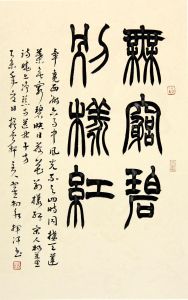 無窮碧
別樣紅
畢竟西湖六月中風光不與四時同接天蓮
葉無窮碧映日荷花別樣紅宋人楊萬里
詩曉出淨慈寺送林子方